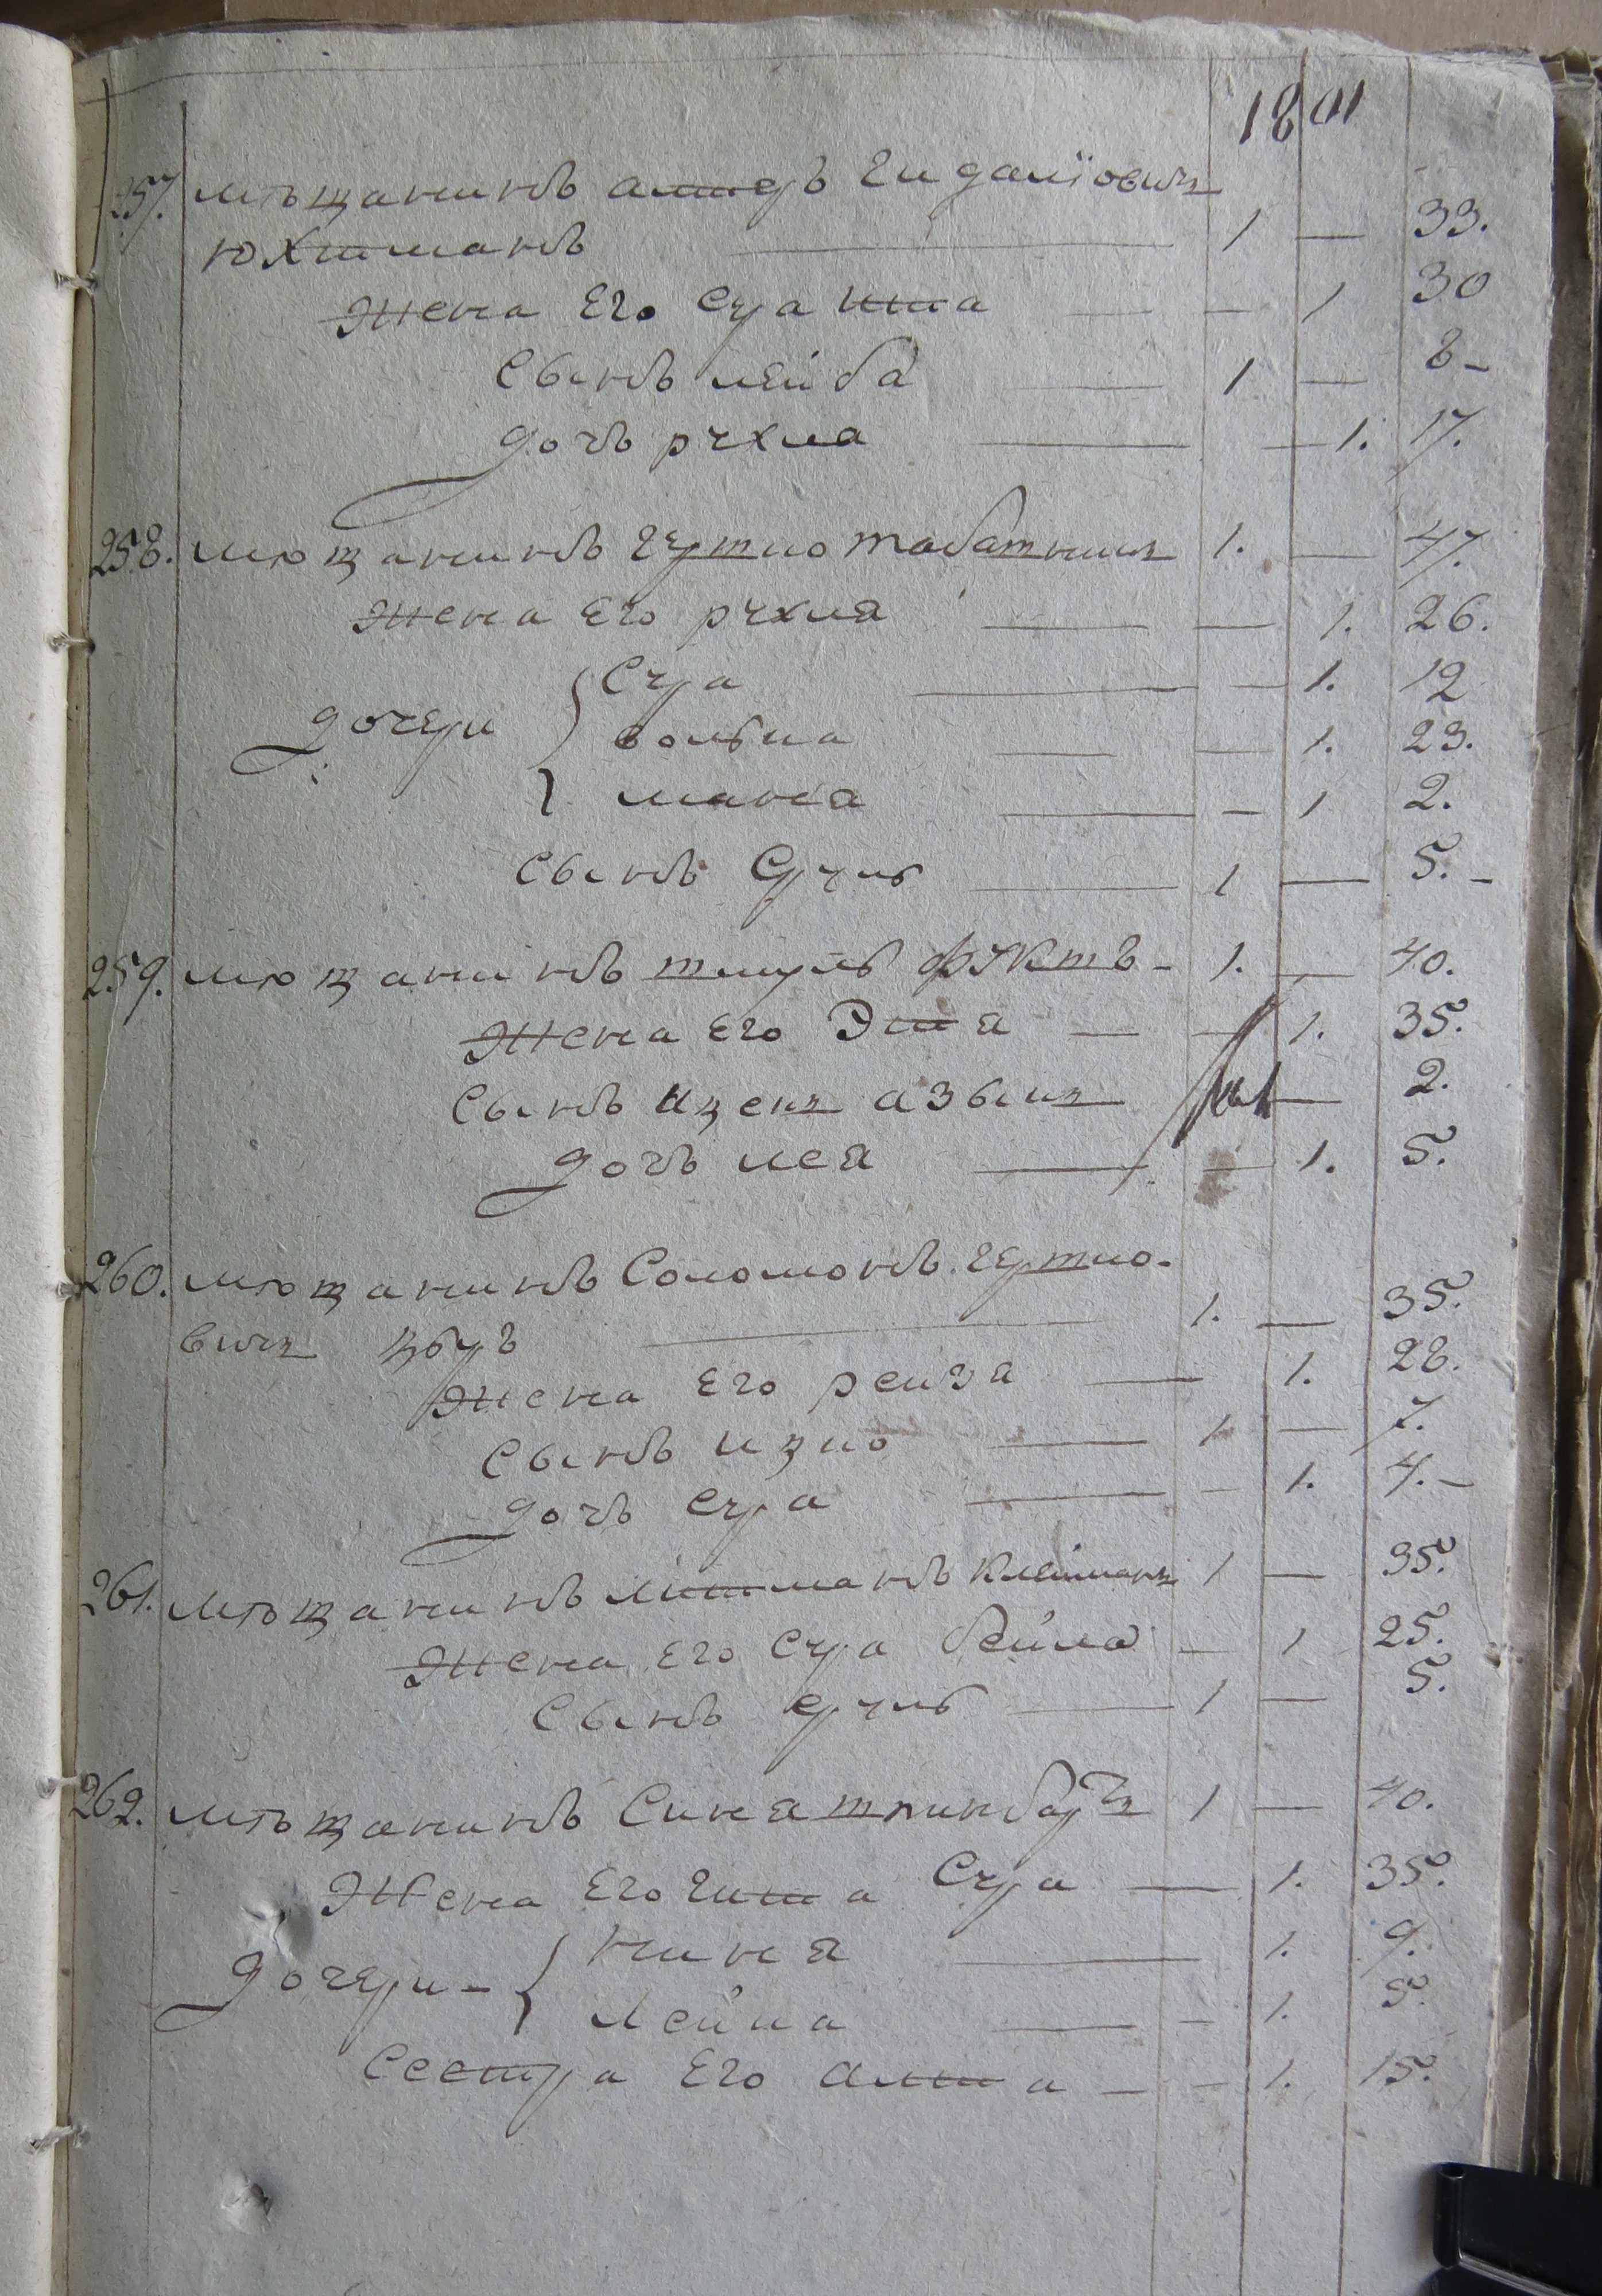 1801
257. мѣщанинъ Гидалїовичъ
— 1 — 33.
Жена Его Сура — — 1 30
Сынъ лейба — 1 — 8 –
дочь рухля — — 1. 17.
258. мѣщанинъ 1. — 47.
Жена Его рухля — — 1. 26.
Сура — — 1. 12
дочери — — 1. 23.
маня — — 1 2.
Сынъ Сруль — 1 — 5. –
259. мѣщанинъ шмуль – 1. — 40.
Жена Его Эта — — 1. 35.
Сынъ Ицекъ — 2.
дочь лея — — 1. 5.
260. мѣщанинъ Соломонъ гершко-
вичъ — 1. — 35.
Жена Его рейзя — 1. 28.
Сынъ ицко — 1 — 7.
дочь Сура — — 1. 4. –
261. мѣщанинъ литманъ клейманъ 1 — 35.
Жена Его Сура бейла – 1 25.
Сынъ Сруль — 1 — 5.
262. мѣщанинъ 1 — 40.
Жена Его гита Сура — 1. 35.
дочери –
— 1. 9.
лейка — – 1. 5.
Сестра Его – – 1. 15.